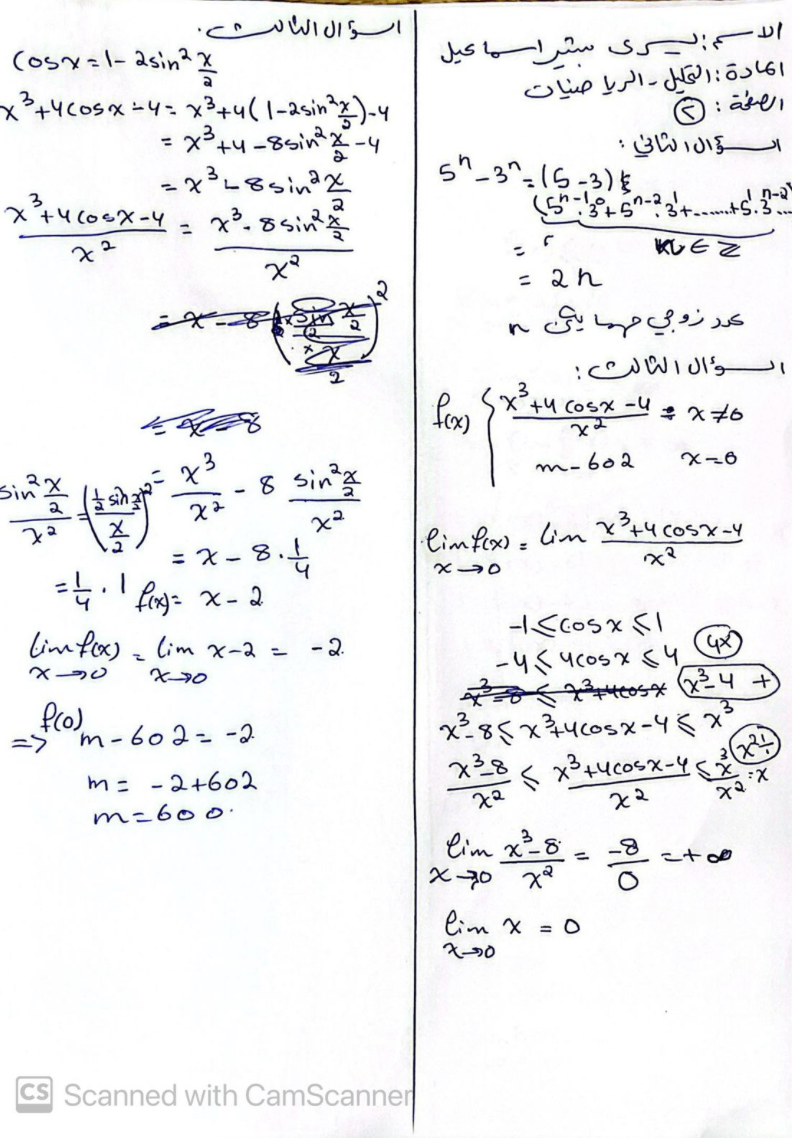 الاسم: يسرى بشير اسماعيل
المادة: التحليل - الرياضيات
الصفحة: ②
السؤال الثاني:
5ⁿ - 3ⁿ = (5 - 3)
(5ⁿ⁻¹.3⁰ + 5ⁿ⁻².3¹ + ....... + 5¹.3ⁿ⁻²
∈ Z
= 2n
عدد زوجي مهما يكن n
السؤال الثالث:
f(x) { (x³ + 4cosx - 4)/x² x ≠ 0
m - 602 x = 0
lim f(x) = lim (x³ + 4cosx - 4)/x²
x→0
-1 ≤ cosx ≤ 1
-4 ≤ 4cosx ≤ 4 (4×)
x³ - 4 +
x³ - 8 ≤ x³ + 4cosx - 4 ≤ x³
(x³ - 8)/x² ≤ (x³ + 4cosx - 4)/x² ≤ x³/x² = x (x² ÷)
lim (x³ - 8)/x² = -8/0 = +∞
x→0
lim x = 0
x→0
السؤال الثالث:
cosx = 1 - 2sin² x/2
x³ + 4cosx - 4 = x³ + 4(1 - 2sin² x/2) - 4
= x³ + 4 - 8sin² x/2 - 4
= x³ - 8sin² x/2
(x³ + 4cosx - 4)/x² = (x³ - 8sin² x/2)/x²
= x³/x² - 8 (sin² x/2)/x²
(sin² x/2)/x² = ((½ sin x/2)/(x/2))²
= ¼ . 1
= x - 8 . ¼
f(x) = x - 2
lim f(x) = lim x - 2 = -2
x→0 x→0
f(0)
=> m - 602 = -2
m = -2 + 602
m = 600.
CS Scanned with CamScanner